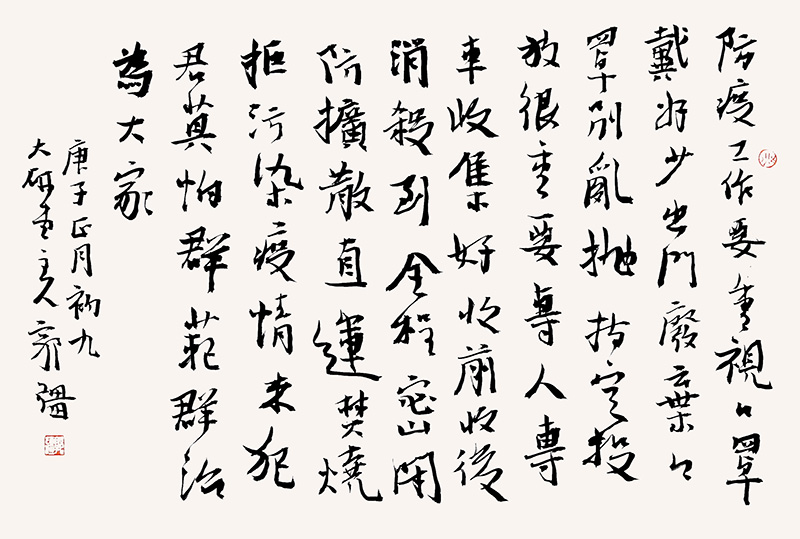 防疫工作要重視口罩
戴好少出門廢棄口
罩別亂拋指定投
放很重要專人專
車收集好收前收後
消殺到全程密閉
防擴散直運焚燒
拒污染疫情来犯
君莫怕群範群治
為大家
庚子正月初九
大研堂主人郭强